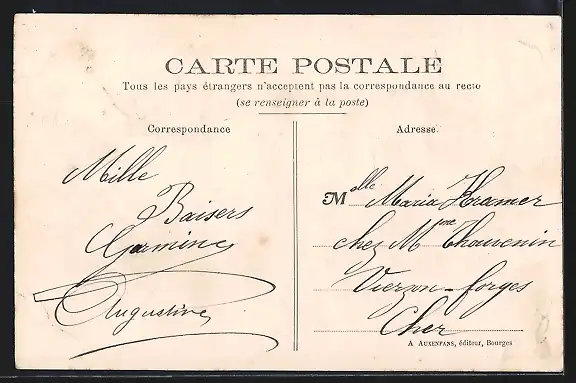 CARTE POSTALE
Tous les pays étrangers n'acceptent pas la correspondance au recto
(se renseigner à la poste)
Correspondance
Adresse
Mille
Baisers
Augustine
Melle Maria Kramer
chez Mme Thouvenin
Vierzon-forges
Cher
A AUXENFANS, éditeur, Bourges